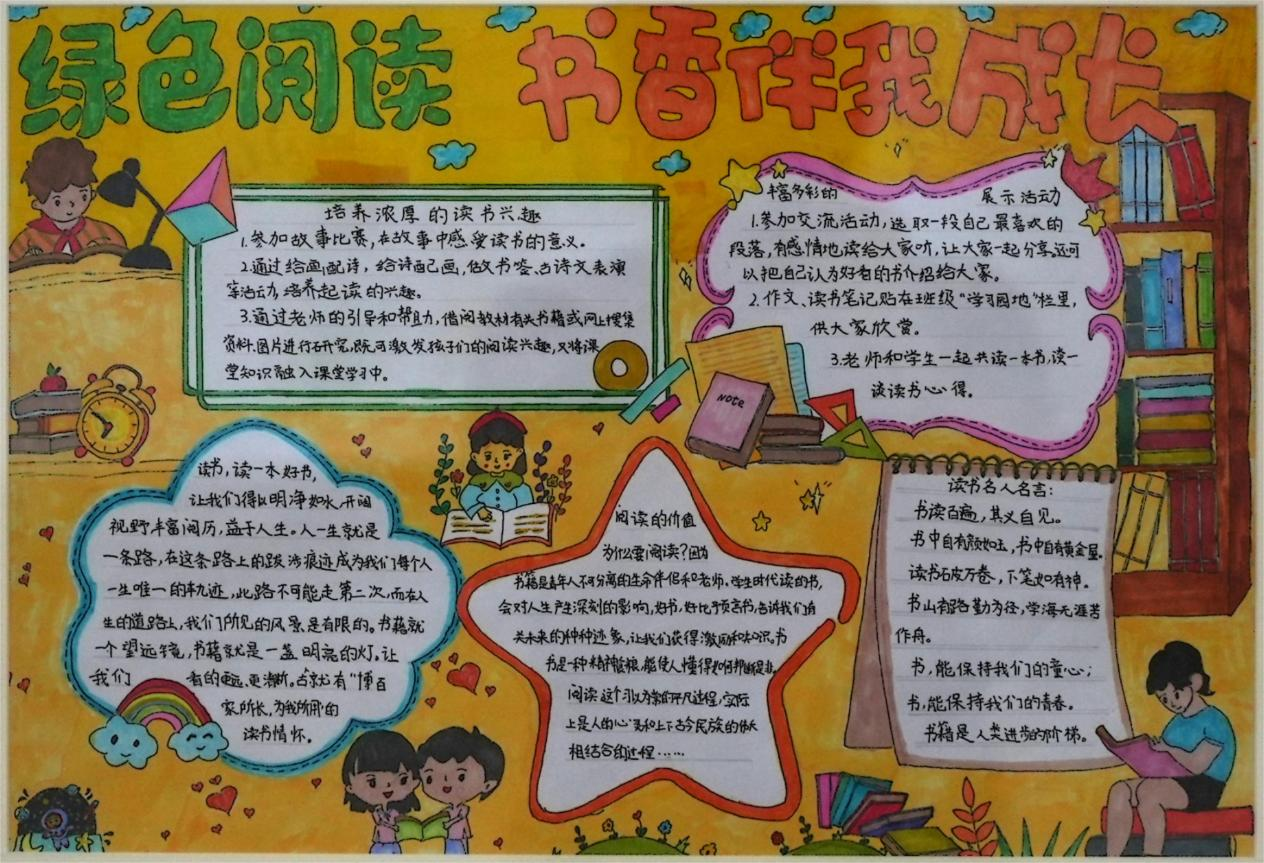 绿色阅读 书香伴我成长
培养浓厚的读书兴趣
1.参加故事比赛,在故事中感受读书的意义。
2.通过给画配诗,给诗配画,做书签、古诗文表演
等活动,培养起读的兴趣。
3.通过老师的引导和帮助,借阅教材有关书籍或网上搜集
资料.图片进行研究,既可激发孩子们的阅读兴趣,又将课
堂知识融入课堂学习中。
丰富多彩的 展示活动
1.参加交流活动,选取一段自己最喜欢的
段落,有感情地读给大家听,让大家一起分享,还可
以把自己认为好看的书介绍给大家。
2.作文、读书笔记贴在班级“学习园地”栏里,
供大家欣赏。
3.老师和学生一起共读一本书,谈一
谈读书心得。
NOTE
读书,读一本好书,
让我们得以明净如水,开阔
视野丰富阅历,益于人生。人一生就是
一条路,在这条路上的跋涉痕迹成为我们每个人
一生唯一的轨迹,此路不可能走第二次,而在人
生的道路上,我们所见的风景是有限的。书籍就
一个望远镜,书籍就是一盏明亮的灯。让
我们 看的更远、更清晰。古就有“博百
家所长,为我所用”的
读书情怀。
阅读的价值
为什么要阅读?因为
书籍是青年人不可分离的生命伴侣和老师,学生时代读的书,
会对人生产生深刻的影响,好书,好比予言书,告诉我们有
关未来的种种迹象,让我们获得激励和知识。书
书是一种精神食粮,能使人懂得如何判断是非。
阅读这个习以为常的平凡过程,实际
上是人的心灵和上下古今民族的伟大
相结合的过程……
读书名人名言:
书读百遍,其义自见。
书中自有颜如玉,书中自有黄金屋。
读书破万卷,下笔如有神。
书山有路勤为径,学海无涯苦
作舟。
书,能保持我们的童心;
书,能保持我们的青春。
书籍是人类进步的阶梯。